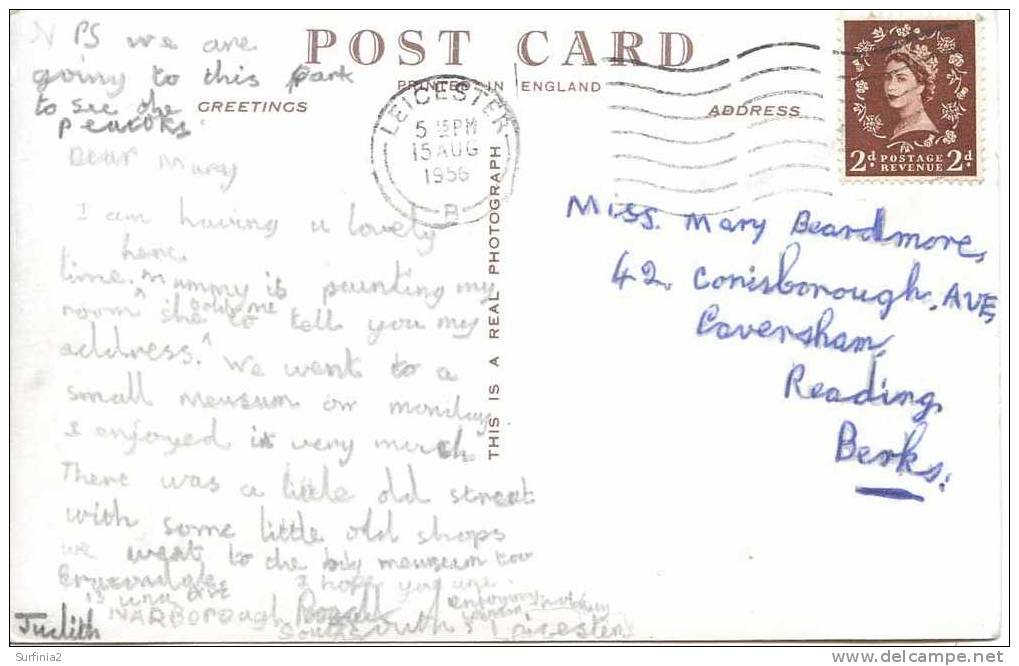 PS we are
going to this park
to see the
peacoks
POST CARD
PRINTED IN ENGLAND
GREETINGS
ADDRESS
LEICESTER
5 15PM
15 AUG
1956
2d POSTAGE 2d
REVENUE
THIS IS A REAL PHOTOGRAPH
Dear Mary
I am having a lovely
time. here Mummy is painting my
room she told me to tell you my
address. We went to a
small meusum on monday
I enjoyed it very much
There was a little old street
with some little old shops
we went to the big meusum too
I hope you are
enjoying
NARBOROUGH Road
South Leicester
Judith
Miss. Mary Beardmore,
42, Conisborough, AVE,
Caversham,
Reading,
Berks.
Surfinia2
delcampe.net